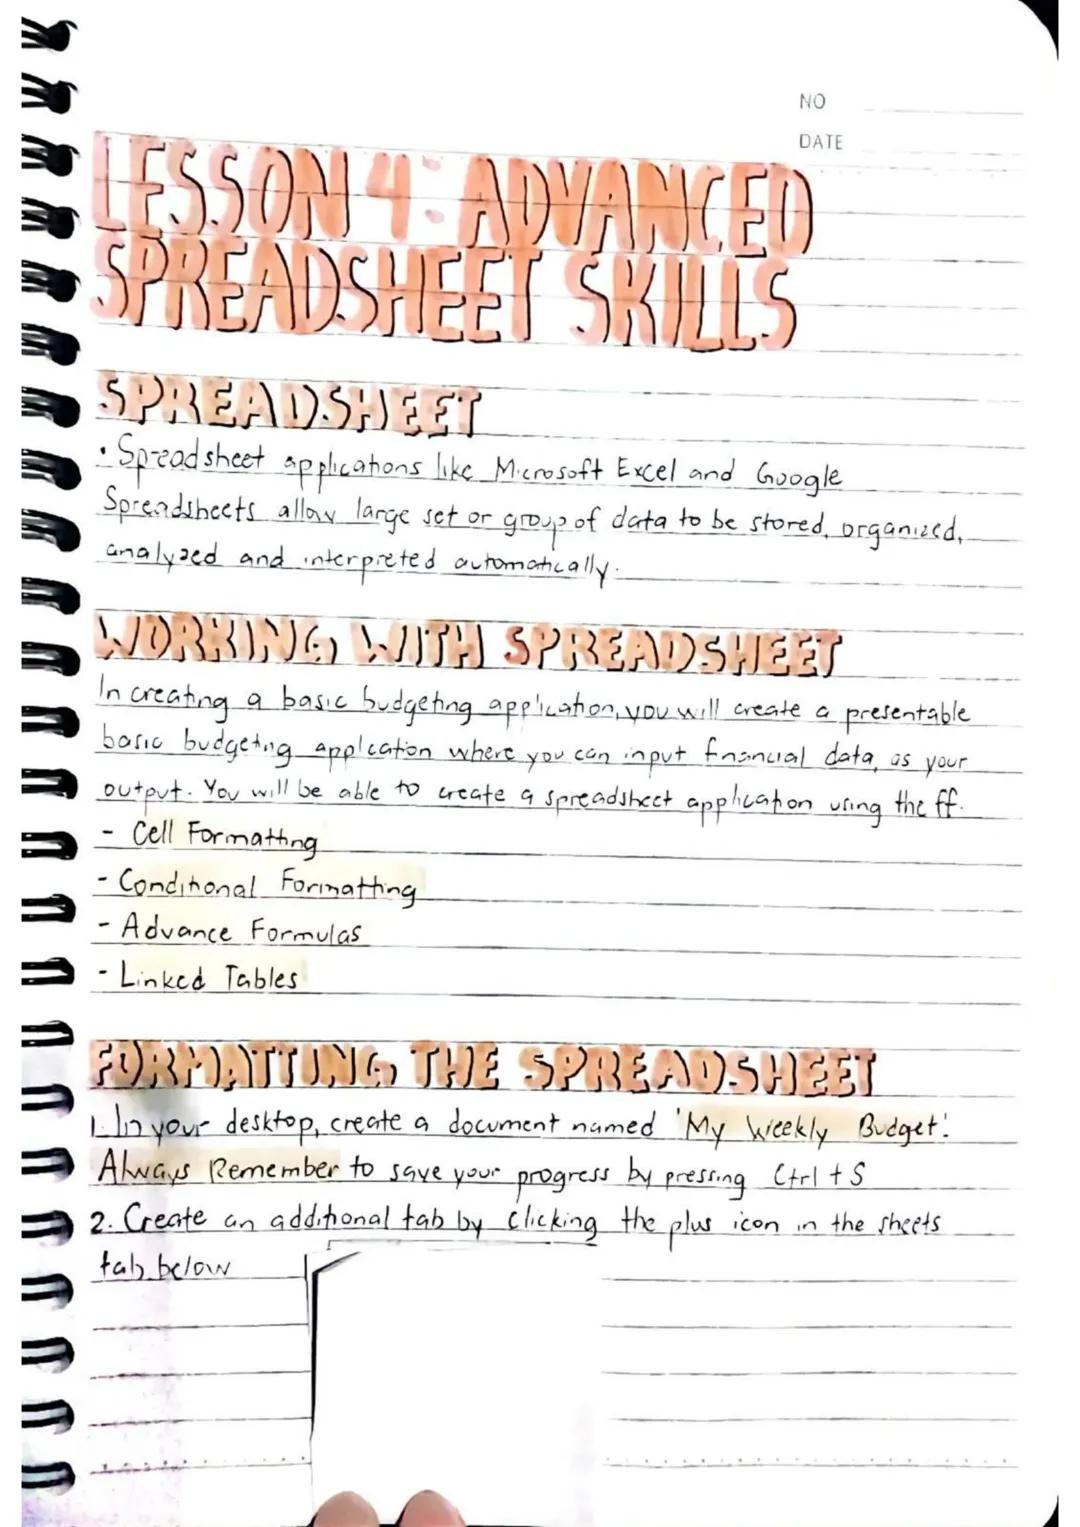 NO
DATE
LESSON 4: ADVANCED
SPREADSHEET SKILLS
SPREADSHEET
• Spreadsheet applications like Microsoft Excel and Google
Spreadsheets allow large set or group of data to be stored, organized,
analyzed and interpreted automatically.
WORKING WITH SPREADSHEET
In creating a basic budgeting application, you will create a presentable
basic budgeting application where you can input financial data, as your
output. You will be able to create a spreadsheet application using the ff.
- Cell Formatting
- Conditional Formatting
- Advance Formulas
- Linked Tables
FORMATTING THE SPREADSHEET
1. In your desktop, create a document named 'My Weekly Budget'.
Always Remember to save your progress by pressing Ctrl + S
2. Create an additional tab by clicking the plus icon in the sheets
tab below